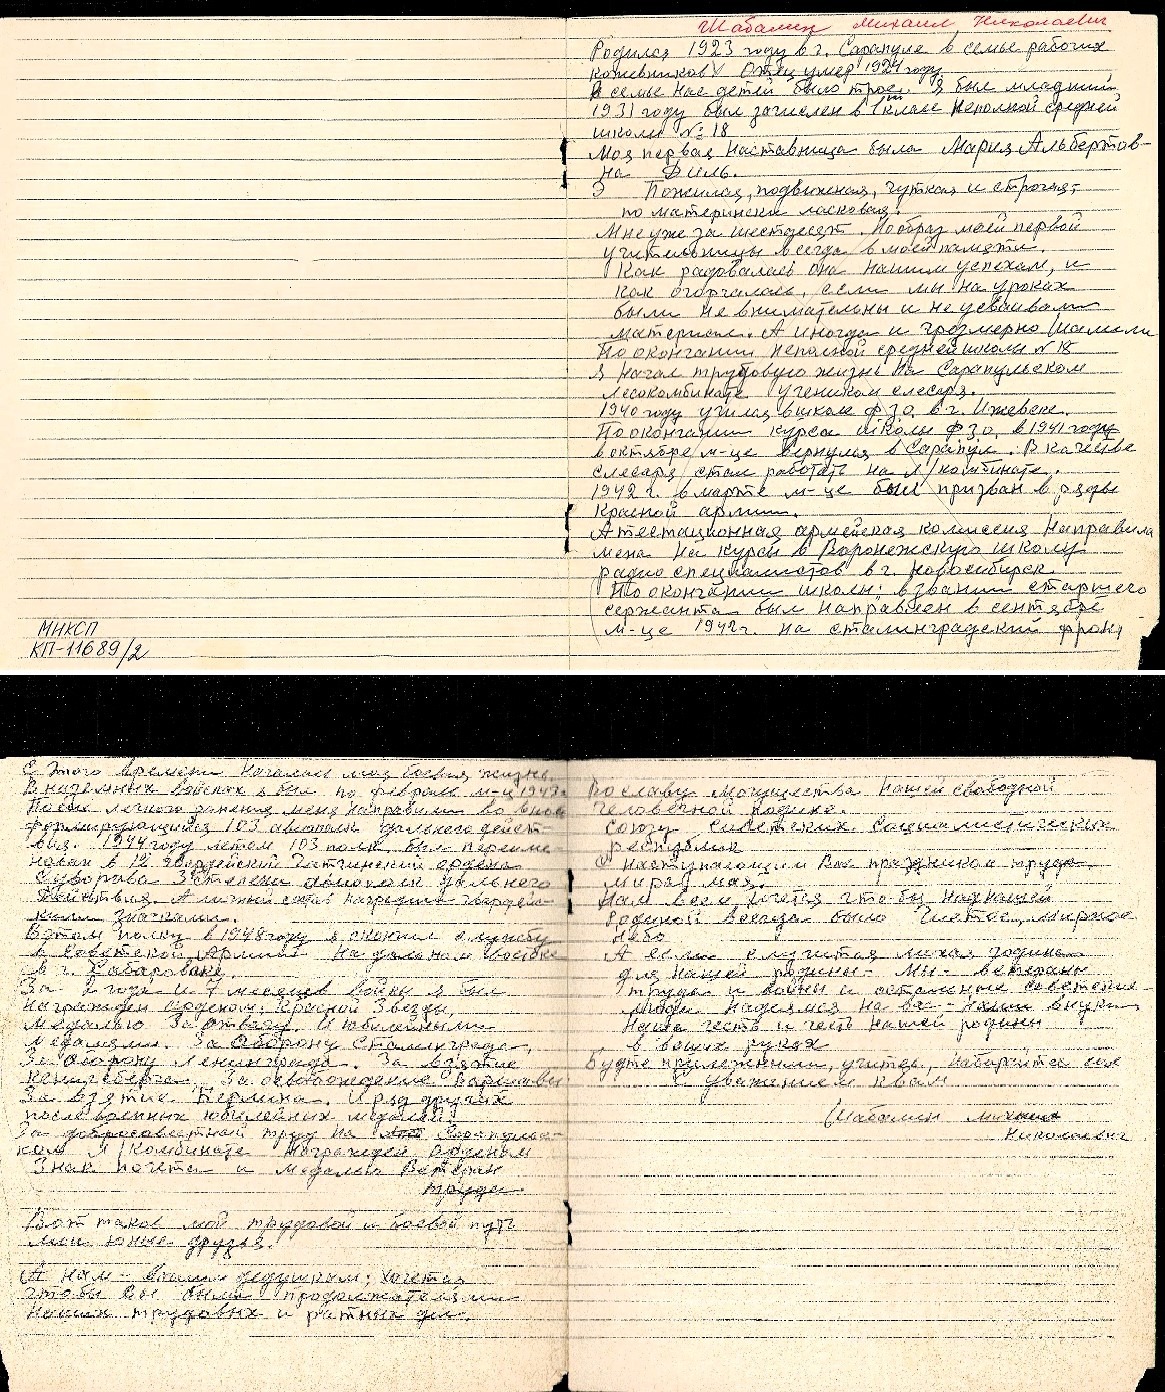 Шабалин Михаил Николаевич
Родился 1923 году в г. Сарапуле в семье рабочих
кожевников. Отец умер 1924 году.
В семье нас детей было трое. Я был младший
1931 году был зачислен в 1ый класс Неполной средней
школы № 18
Моя первая Наставница была Мария Альбертов-
на Диль.
Э Пожилая, подвижная, чуткая и строгая,
по матерински ласковая.
Мне уже за шестдесят. Но образ моей первой
учительницы всегда в моей памяти.
Как радовалась она нашим успехам, и
как огорчалась, если мы на уроках
были не внимательны и не усваивали
материал. А иногда и чрезмерно шалили
По окончании неполной средней школы № 18
Я начал трудовую жизнь на Сарапульском
лесокомбинате учеником слесаря.
1940 году учился в школе ф.з.о. в г. Ижевске.
По окончании курса школы ф.з.о. в 1941 году
в октябре м-це вернулся в Сарапул. В качестве
слесаря стал работать на Л/комбинате.
1942 г. в марте м-це был призван в ряды
Красной армии.
Аттестационная армейская комиссия Направила
меня на курсы в Воронежскую школу
радио специалистов в г. Новосибирск.
По окончании школы; в звании старшего
сержанта был направлен в сентябре
м-це 1942 г. на сталинградский фронт
МИКСП
КП-11689/2
С этого времени Началась моя боевая жизнь.
В наземных войсках я был по февраль м-ц 1943г.
После лечного ранения меня направили во вновь
формирующийся 103 авиополк дальнего дейст-
вия. 1944 году летом 103 полк был переиме-
нован в 12 Гвардейский Гатчинский ордена
Суворова 3 степени авиополк дальнего
действия. А личный состав наградили гвардей-
скими значками.
В этом полку в 1948 году я окончил службу
в Советской Армии. На дальнем востоке
в г. Хабаровске.
За 2 года и 7 месяцев войны я был
награжден орденом: Красной Звезды,
медалью За отвагу. И юбилейными
медалями. За оборону Сталинграда,
За оборону Ленинграда. За взятие
Кенигсберга. За освобождение Варшавы
За взятие Берлина. И ряд других
послевоенных юбилейных медалей.
За добросовестный труд на Сарапульс-
ком Л/Комбинате Награжден орденом
Знак почета и медалью Ветеран
труда.
Вот таков мой трудовой и боевой путь
мои юные друзья.
А нам - вашим дедушкам; хочется
чтобы Вы были продолжателями
наших трудовых и ратных дел.
Во славу могущества Нашей свободной
человечной родине.
Союзу Советских Социалистических
республик
С наступающим Вас праздником труда
мира, мая.
Нам всем хочется чтобы над нашей
Родиной всегда было Чистое, мирное
небо
А если случится лихая година
для нашей родины - Мы - ветераны
труда и войны и остальные советские
люди надеемся на вас - наши внуки
Наша честь и честь нашей родины
в ваших руках
Будте прилежными, учитесь, набирайтесь сил
С уважением к вам
Шабалин михаил
Николаевич